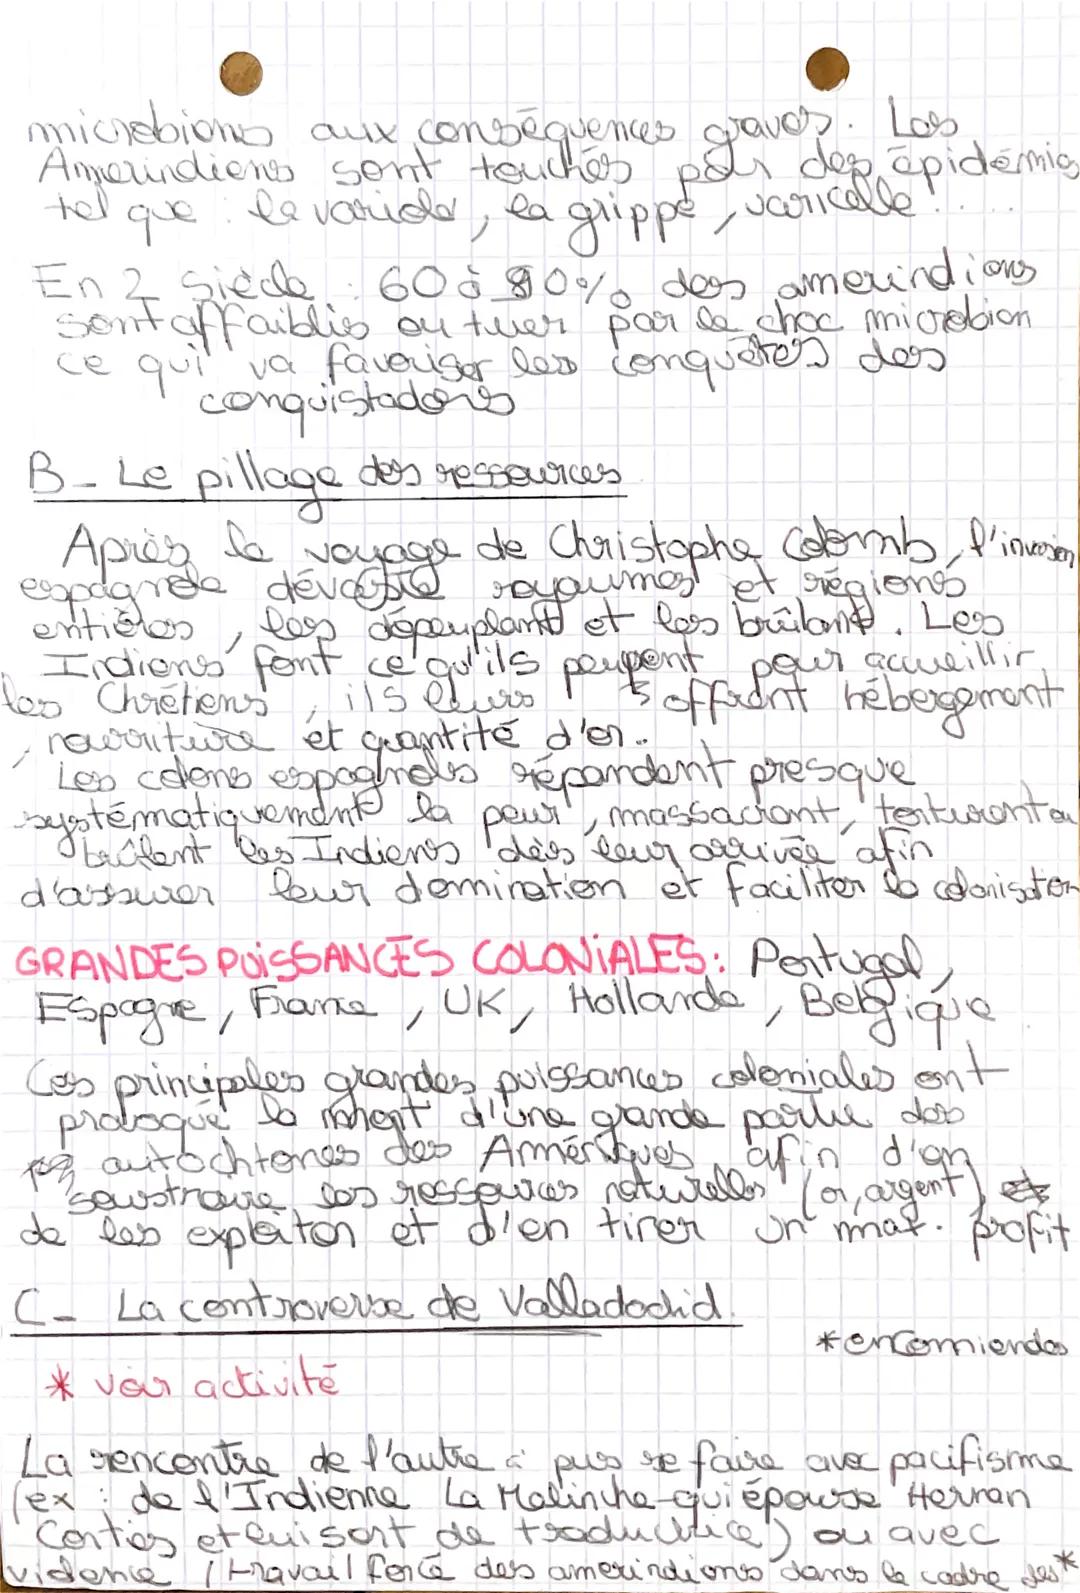 microbiens aux conséquences graves. Les
Amerindiens sont touchés par des épidémies
tel que : la variole, la grippe, varicelle ! ....
En 2 siècle : 60 à 90% des amerindiens
sont affaiblis ou tuer par le choc microbien
ce qui va favoriser les conquêtes des
conquistadors
B- Le pillage des ressources
Après le voyage de Christophe Colomb, l'invasion
espagnole dévaste royaumes et régions
entières, les dépeuplant et les brûlant. Les
Indiens font ce qu'ils peupent pour accueillir
les Chrétiens, ils leurs offrent hébergement
, nourriture et quantité d'or..
Les colons espagnols répandent presque
systématiquement la peur, massacrant, torturant ou
brûlent les Indiens dès leur arrivée afin
d'assurer leur domination et faciliter la colonisation
GRANDES PUISSANCES COLONIALES: Portugal,
Espagne, France, UK, Hollande, Belgique
Ces principales grandes puissances coloniales ont
provoqué la mort d'une grande partie des
autochtones des Amériques afin d'en
soustraire les ressources naturelles (or, argent)
de les exploiter et d'en tirer un max. profit
C- La controverse de Valladodid.
*encomiendas
* voir activité
La rencontre de l'autre a pus se faire avec pacifisme
(ex : de l'Indienne La Malinche qui épouse Hernan
Cortés et lui sert de traductrice) ou avec
violence (travail forcé des amerindiens dans le cadre des*